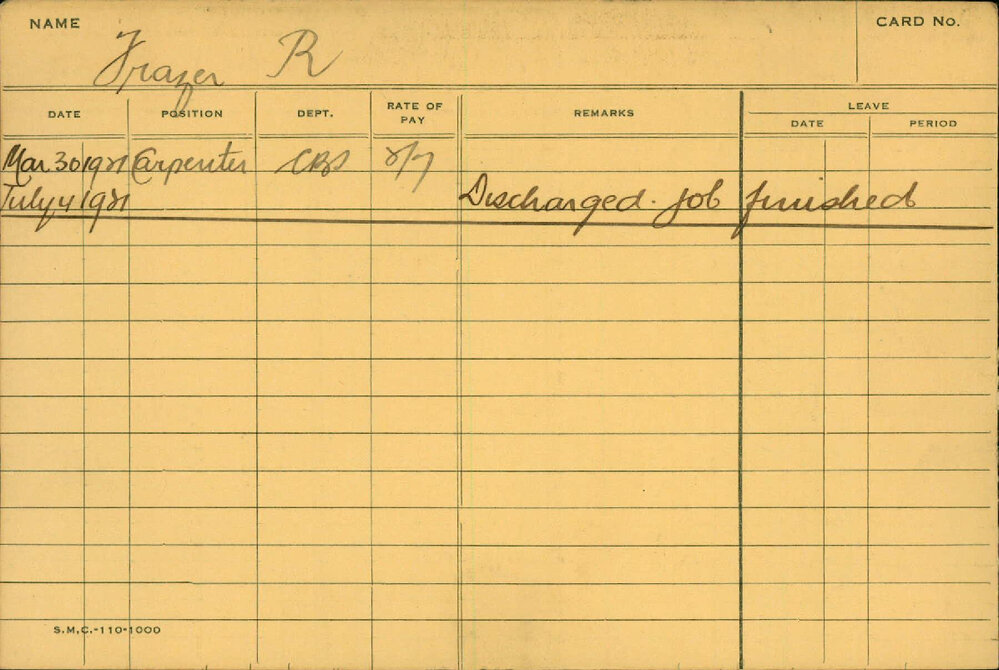 NAME Frazer R CARD No.
DATE POSITION DEPT. RATE OF PAY REMARKS LEAVE
DATE PERIOD
Mar 30 1921 Carpenter CBS
July 4 1921 Discharged. job finished
S.M.C.-110-1000